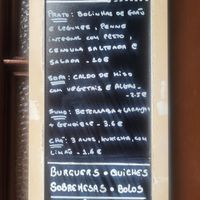 PRATO: BOLINHAS DE GRÃO
E LEGUMES, PENNE
INTEGRAL COM PESTO,
CENOURA SALTEADA E
SALADA - 10€
SOPA: CALDO DE MISO
COM VEGETAIS E ALGAS
- 2.5€
SUMO: BETERRABA + LARANJA
+ GENGIBRE - 3.6€
CHÁ: 3 ANOS, KUKICHA, COM
LIMÃO - 1.6€
BURGUERS • QUICHES
SOBREMESAS • BOLOS